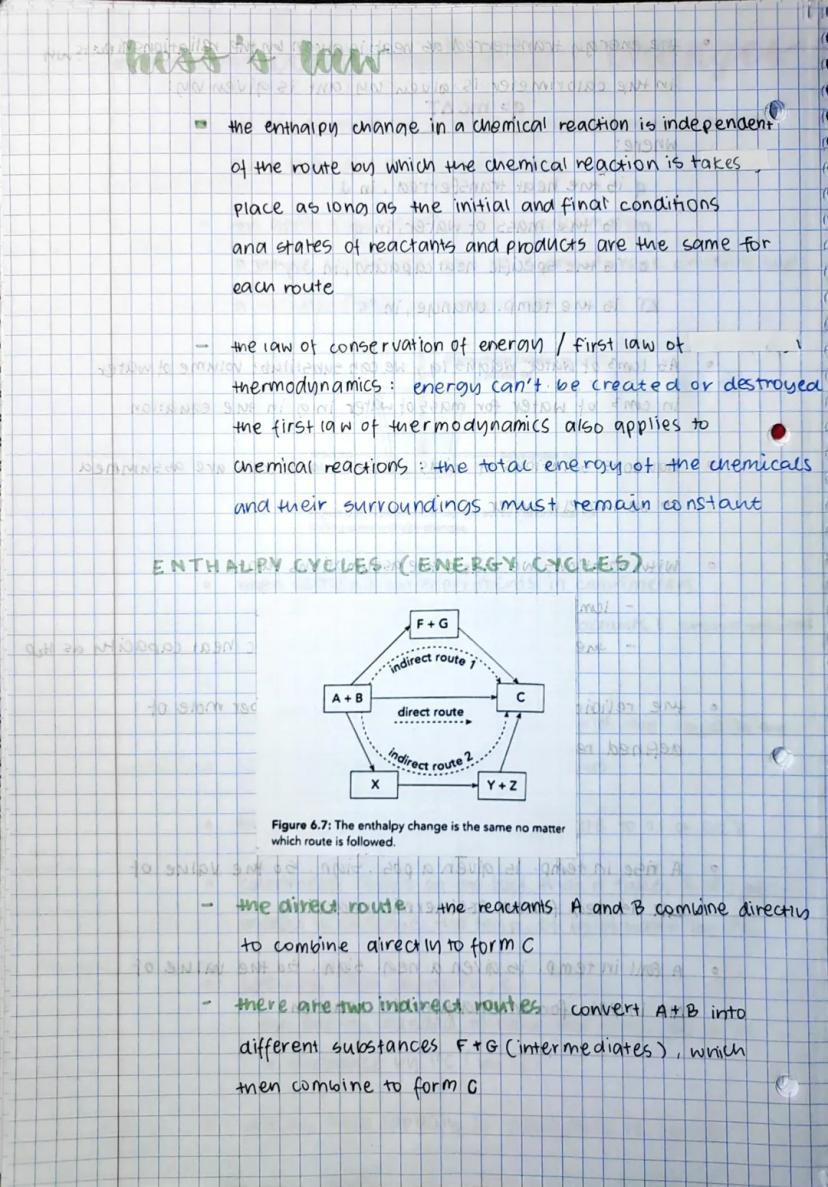 hess's law
the enthalpy change in a chemical reaction is independent
of the route by which the chemical reaction is takes
place as long as the initial and final conditions
and states of reactants and products are the same for
each route
- the law of conservation of energy / first law of
thermodynamics : energy can't be created or destroyed
the first law of thermodynamics also applies to
chemical reactions : the total energy of the chemicals
and their surroundings must remain constant
ENTHALPY CYCLES (ENERGY CYCLES)
F + G
indirect route 1
A + B
C
direct route
indirect route 2
X
Y + Z
Figure 6.7: The enthalpy change is the same no matter
which route is followed.
- the direct route the reactants A and B combine directly
to combine directly to form C
- there are two indirect routes convert A+B into
different substances F+G (intermediates), which
then combine to form C